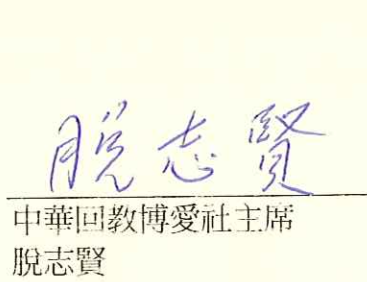 脫志賢
中華回教博愛社主席
脫志賢